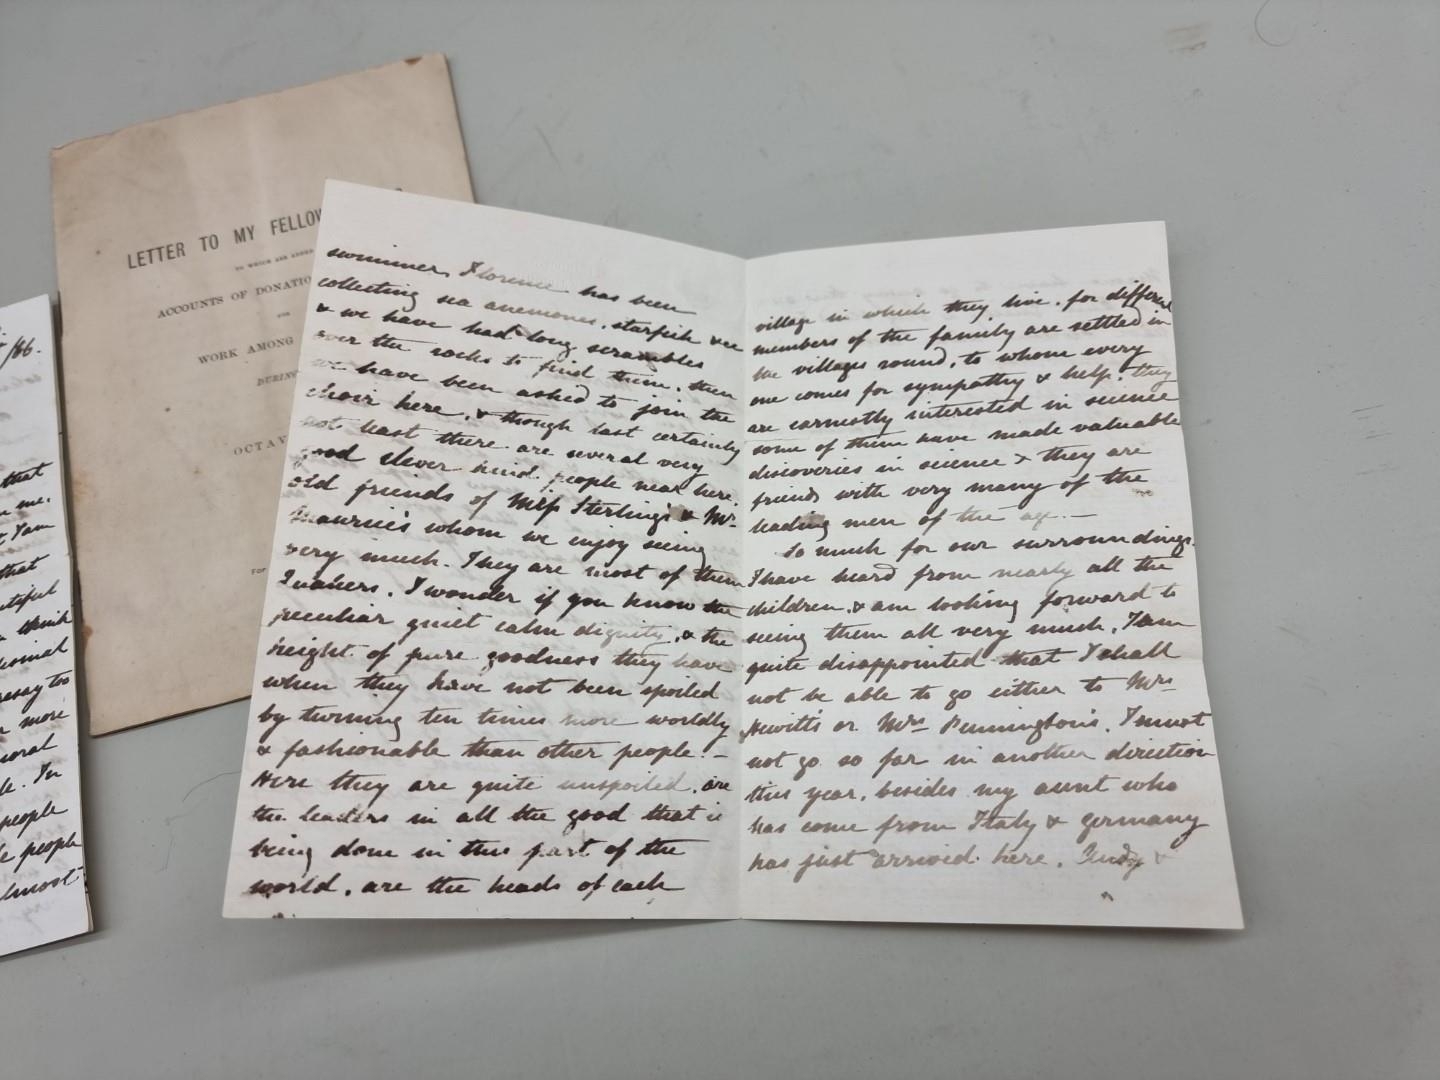 LETTER TO MY FELLO
TO WHICH ARE ADDED
ACCOUNTS OF DONATIO
FOR
WORK AMONG
DURING
OCTAV
FOR
/66.
that
me.
I am
that
think
essay too
more
In
people
people
almost
swimmer, Florence has been
collecting sea anemones, starfish &c
& we have had long scrambles
over the rocks to find them, then
we have been asked to join the
choir here, & though last certainly
not least there are several very
good clever kind people near here.
old friends of Miss Sterling's & Mr.
Maurice's whom we enjoy seeing
very much. They are most of them
Quakers. I wonder if you know the
peculiar quiet calm dignity, & the
height of pure goodness they have
when they have not been spoiled
by turning ten times more worldly
& fashionable than other people. –
Here they are quite unspoiled, are
the leaders in all the good that is
being done in this part of the
world, are the heads of each
village in which they live, for different
members of the family are settled in
the villages round, to whom every
one comes for sympathy & help, they
are earnestly interested in science
some of them have made valuable
discoveries in science & they are
friends with very many of the
leading men of the age. –
So much for our surroundings.
I have heard from nearly all the
children, & am looking forward to
seeing them all very much, I am
quite disappointed that I shall
not be able to go either to Mrs
Hewitt's or Mrs Pennington's. I must
not go so far in another direction
this year, besides my aunt who
has come from Italy & Germany
has just arrived here.